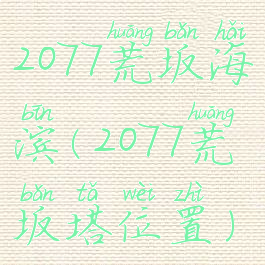 huāng bǎn hǎi
2077荒坂海
bīn huāng
滨(2077荒
bǎn tǎ wèi zhì
坂塔位置)